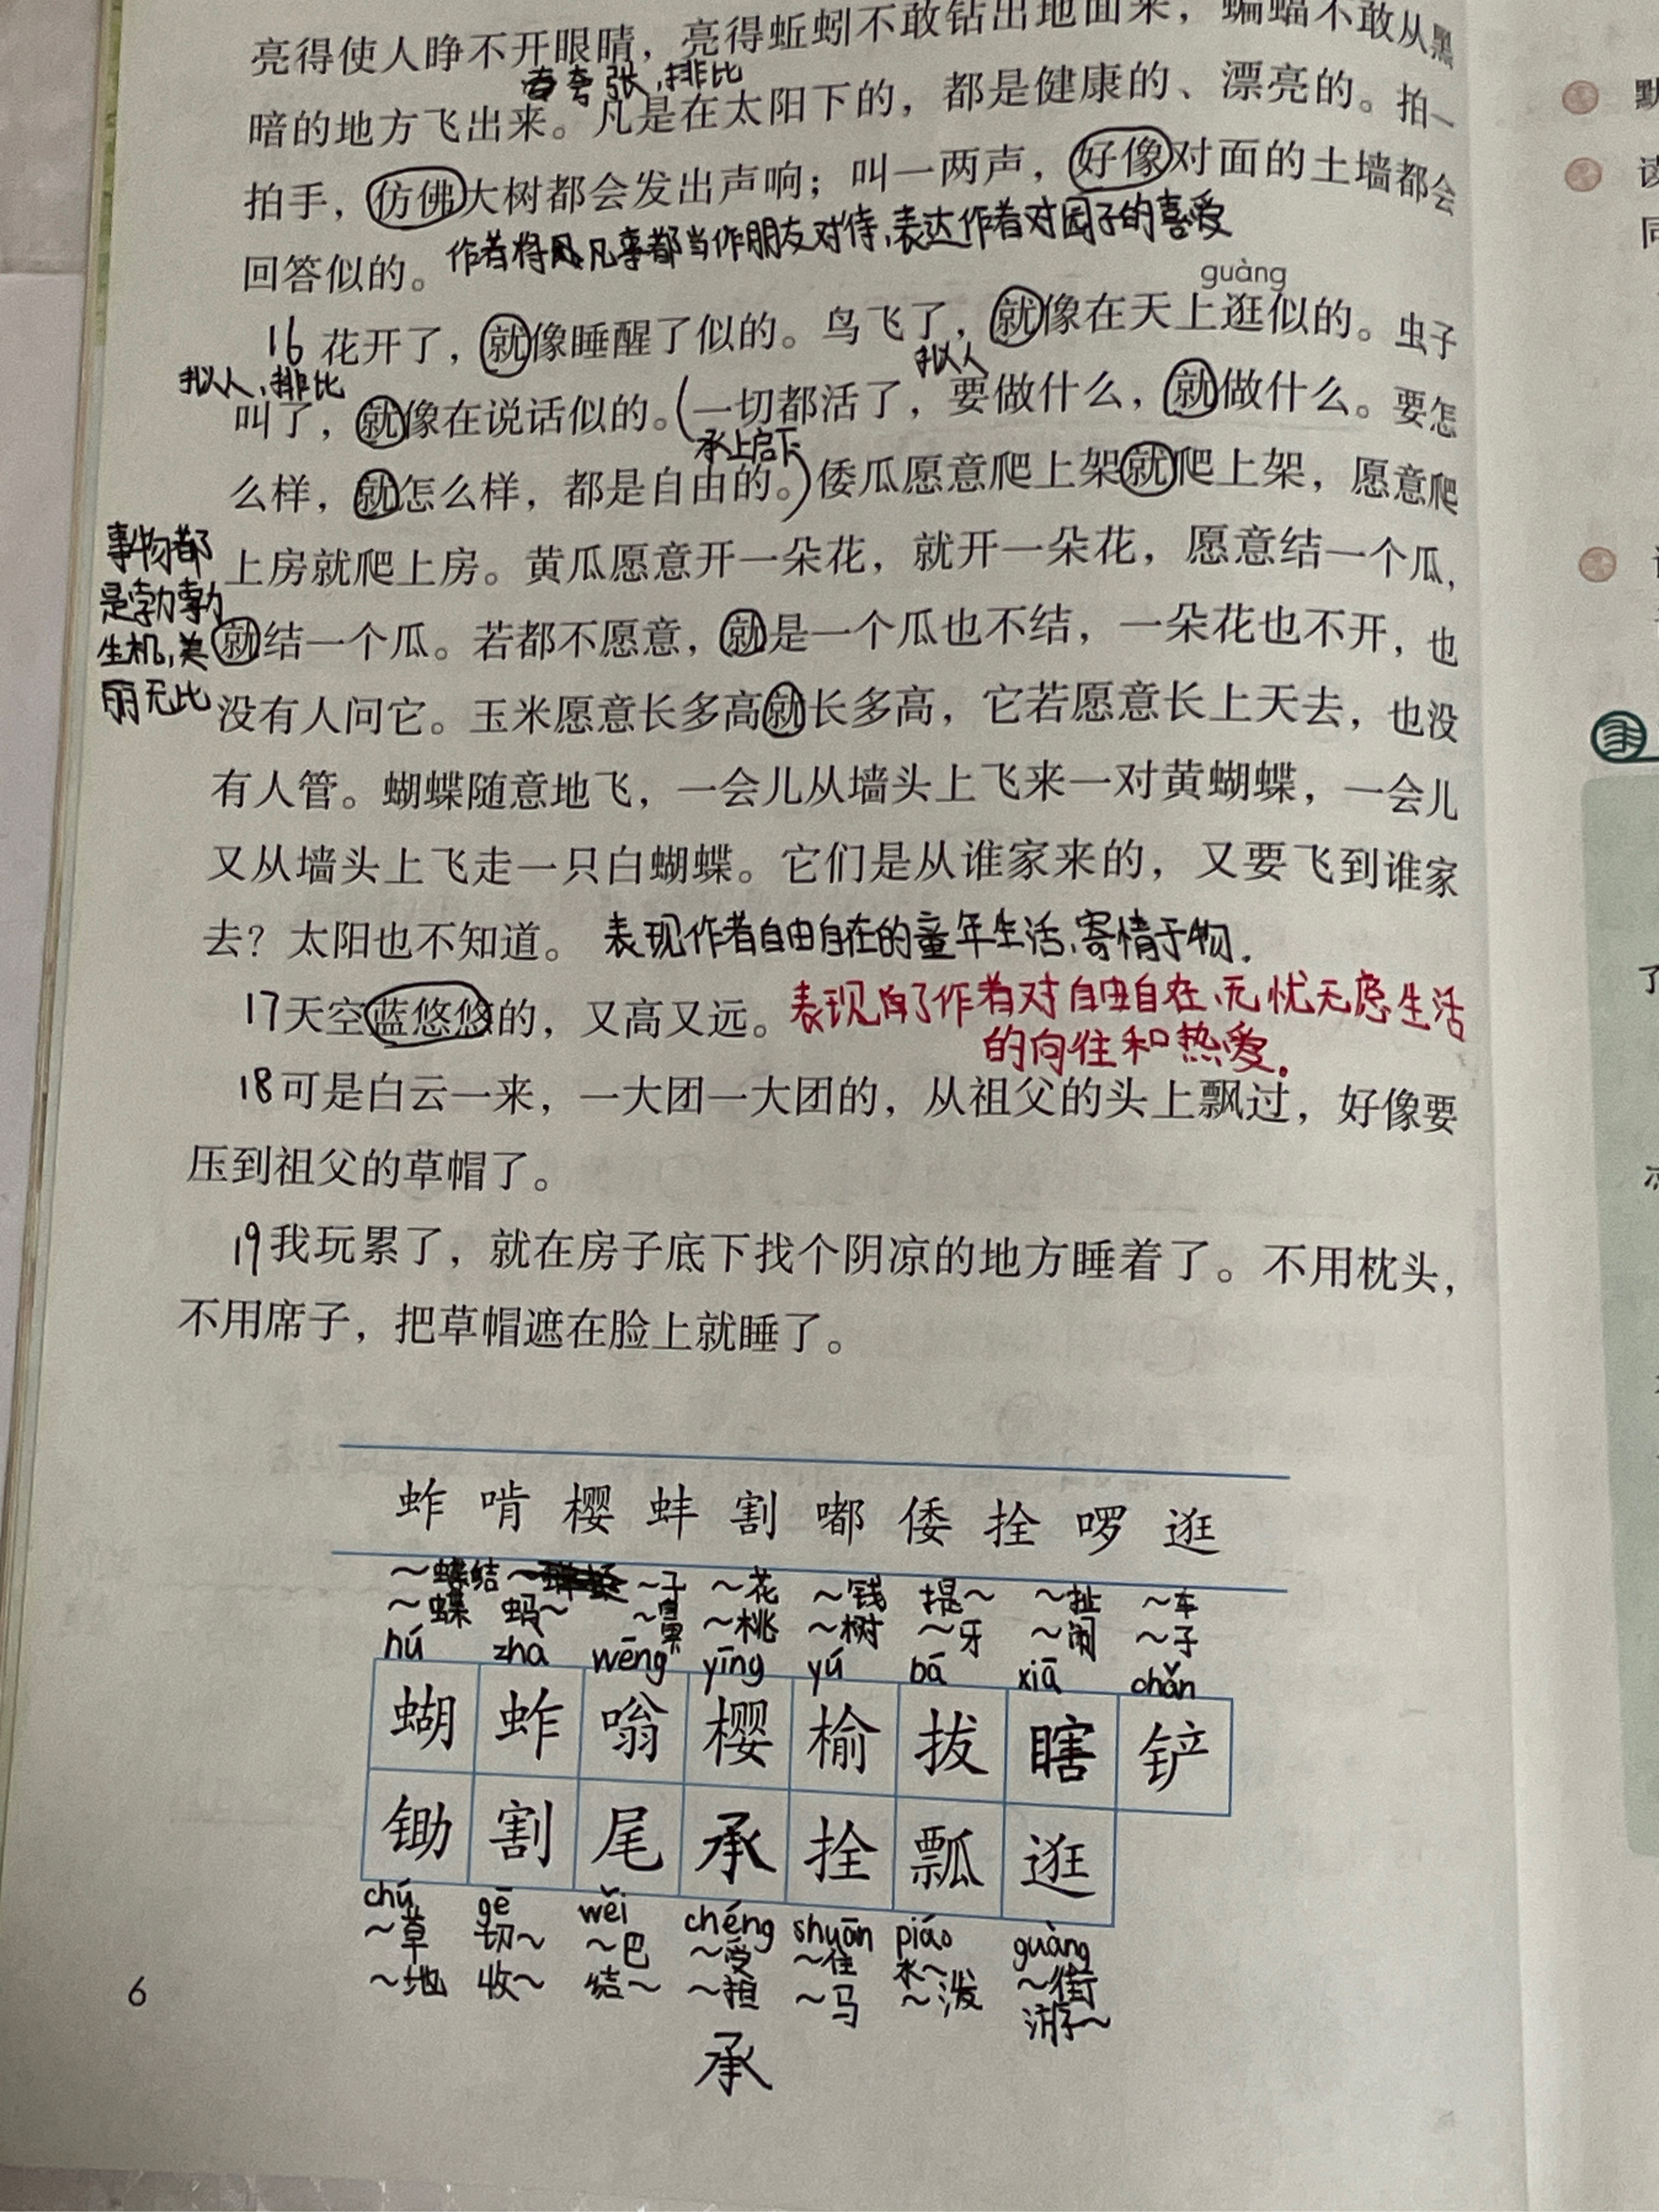 亮得使人睁不开眼睛，亮得蚯蚓不敢钻出地面来，蝙蝠不敢从黑
夸张、排比
暗的地方飞出来。凡是在太阳下的，都是健康的、漂亮的。拍一
拍手，仿佛大树都会发出声响；叫一两声，好像对面的土墙都会
作者将凡事都当作朋友对待、表达作者对园子的喜爱
回答似的。
guàng
16 花开了，就像睡醒了似的。鸟飞了，就像在天上逛似的。虫子
拟人、排比
拟人
叫了，就像在说话似的。(一切都活了，要做什么，就做什么。要怎
承上启下
么样，就怎么样，都是自由的。)倭瓜愿意爬上架就爬上架，愿意爬
事物都
是勃勃
生机，美
丽无比
上房就爬上房。黄瓜愿意开一朵花，就开一朵花，愿意结一个瓜，
就结一个瓜。若都不愿意，就是一个瓜也不结，一朵花也不开，也
没有人问它。玉米愿意长多高就长多高，它若愿意长上天去，也没
有人管。蝴蝶随意地飞，一会儿从墙头上飞来一对黄蝴蝶，一会儿
又从墙头上飞走一只白蝴蝶。它们是从谁家来的，又要飞到谁家
去？太阳也不知道。 表现作者自由自在的童年生活、寄情于物.
17天空蓝悠悠的，又高又远。 表现了作者对自由自在、无忧无虑生活
的向往和热爱.
18可是白云一来，一大团一大团的，从祖父的头上飘过，好像要
压到祖父的草帽了。
19我玩累了，就在房子底下找个阴凉的地方睡着了。不用枕头，
不用席子，把草帽遮在脸上就睡了。
蚱 啃 樱 蚌 割 嘟 倭 拴 啰 逛
～蝶结 ～子 ～花 ～钱 提～ ～扯 ～车
～蝶 蚂～ ～桃 ～树 ～牙 ～闹 ～子
hú zha wēng yīng yú bá xiā chǎn
蝴 蚱 嗡 樱 榆 拔 瞎 铲
锄 割 尾 承 拴 瓢 逛
chú gē wěi chéng shuān piáo guàng
～草 切～ ～巴 ～受 ～住 水～ ～街
～地 收～ 结～ ～担 ～马 ～泼 游～
承
6
默
读
同